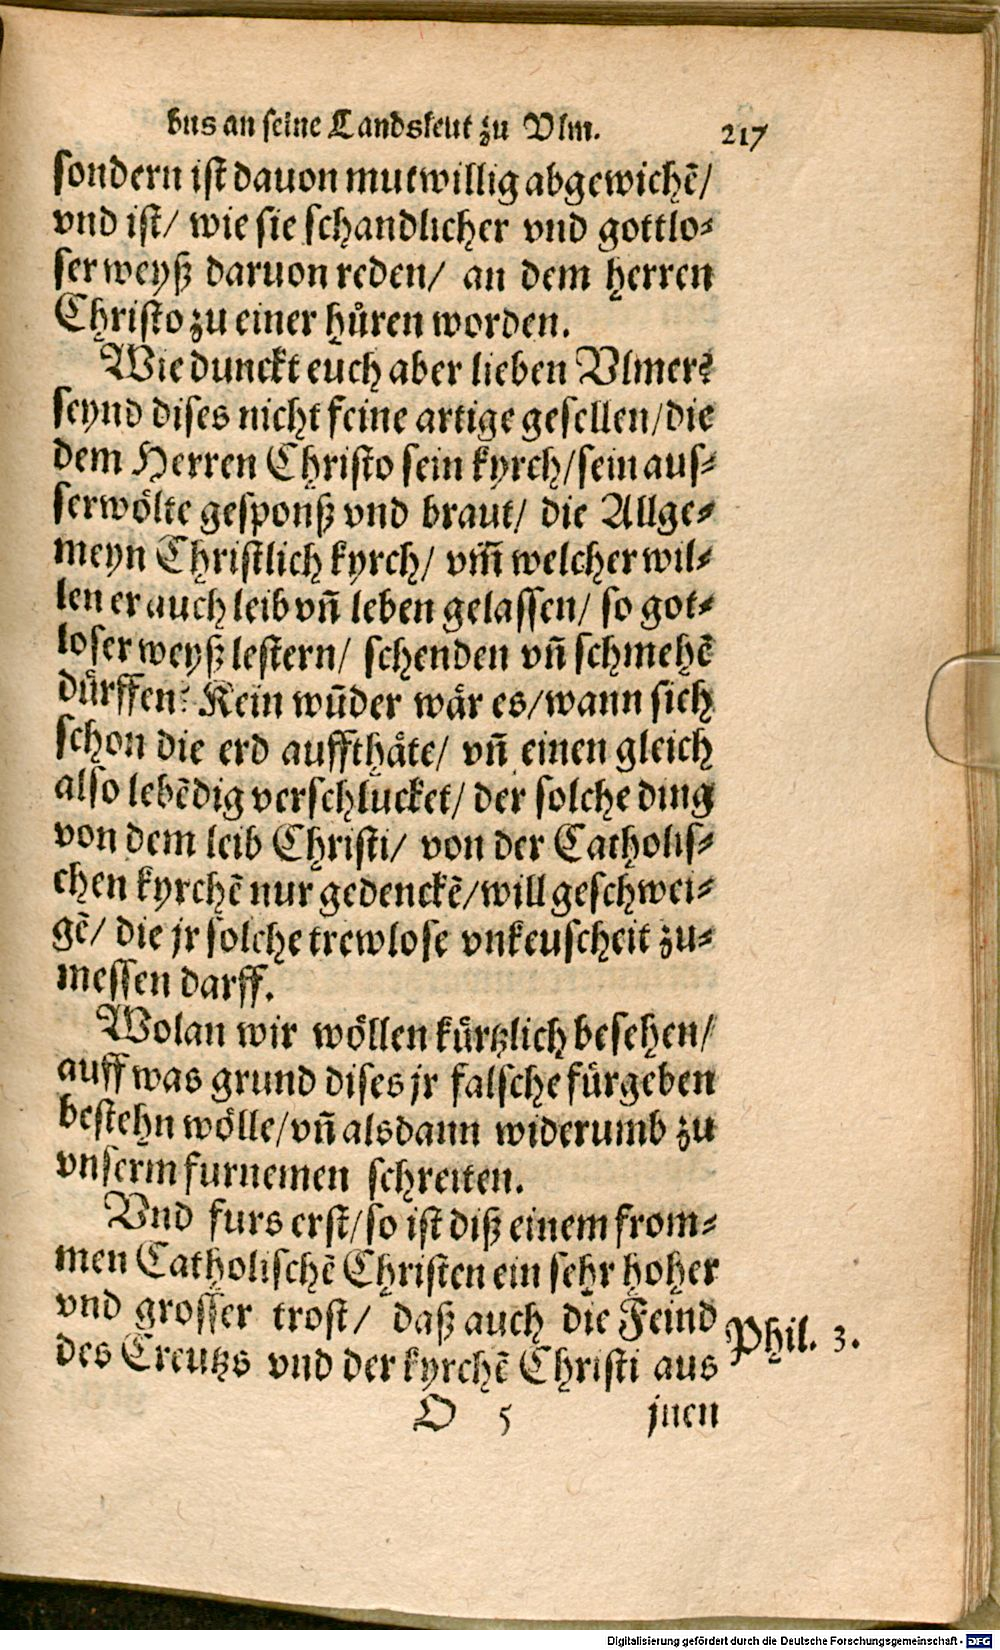 bus an seine Landsleut zu Vlm. 217
sondern ist dauon mutwillig abgewichẽ/
vnd ist/ wie sie schandlicher vnd gottlo-
ser weyß daruon reden/ an dem herren
Christo zu einer hůren worden.
Wie dunckt euch aber lieben Vlmer?
seynd dises nicht feine artige gesellen/die
dem Herren Christo sein kyrch/sein aus-
serwölte gesponß vnd braut/ die Allge-
meyn Christlich kyrch/ vm̃ welcher wil-
len er auch leib vñ leben gelassen/ so got-
loser weyß lestern/ schenden vñ schmehẽ
dürffen? Kein wũder wär es/wann sich
schon die erd auffthäte/ vñ einen gleich
also lebẽdig verschlucket/ der solche ding
von dem leib Christi/ von der Catholis-
chen kyrchẽ nur gedenckẽ/will geschwei-
gẽ/ die jr solche trewlose vnkeuscheit zu-
messen darff.
Wolan wir wöllen kürtzlich besehen/
auff was grund dises jr falsche fürgeben
bestehn wölle/vñ alsdann widerumb zu
vnserm furnemen schreiten.
Vnd furs erst/so ist diß einem from-
men Catholischẽ Christen ein sehr hoher
vnd grosser trost/ daß auch die Feind
des Creutzs vnd der kyrchẽ Christi aus
Phil. 3.
O 5 jnen
Digitalisierung gefördert durch die Deutsche Forschungsgemeinschaft - DFG